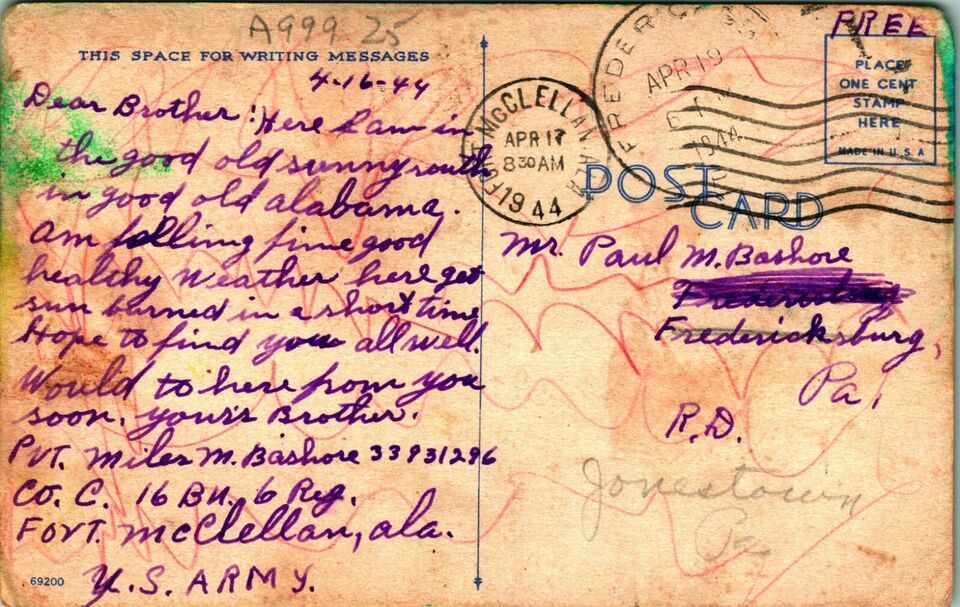 A999 25
THIS SPACE FOR WRITING MESSAGES
4-16-44
Dear Brother: Here I am in
the good old sunny south
in good old alabama.
am fellimg fine good
healthy weather here get
sun burned in a short time
Hope to find you all well.
Would to here from you
soon. your's Brother.
Pvt. Miles M. Bashore 33931296
Co. C. 16 Bn. 6 Reg.
Fort. McClellan, ala.
U.S. ARMY.
69200
FORT MCCLELLAN, ALA
APR 17
8 30 AM
1944
APR 19
1944
FREE
PLACE
ONE CENT
STAMP
HERE
MADE IN U.S.A
POST
CARD
Mr. Paul M. Bashore
Fredericksburg,
Pa,
R.D.
Jonestown
Pa